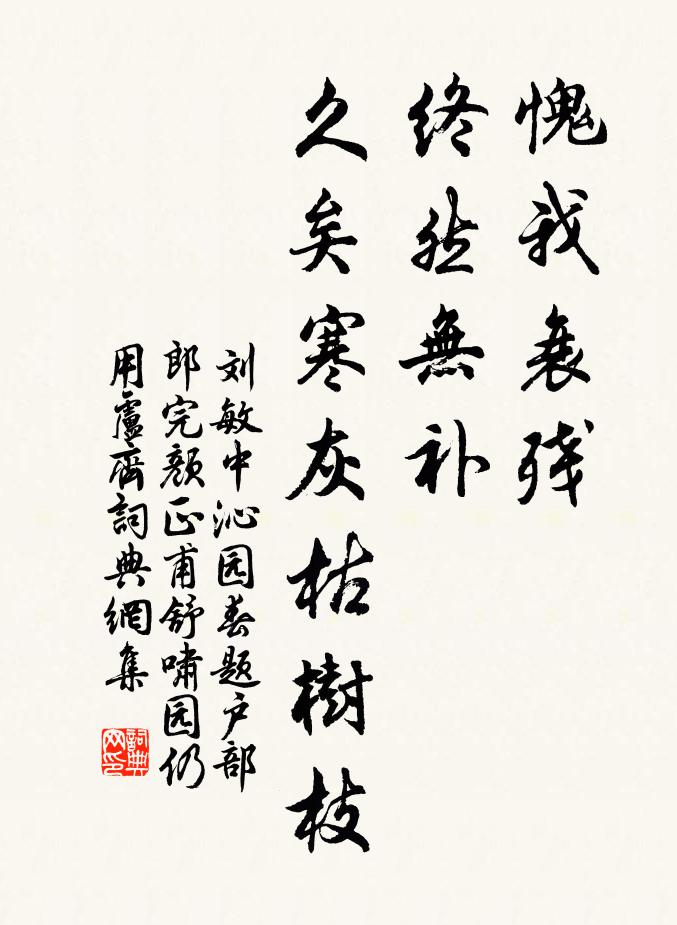 愧我衰残
终然無补
久矣寒灰枯樹枝
刘敏中沁园春题户部
郎完颜正甫舒啸园仍
用盧斋詞典網集
詞典网印